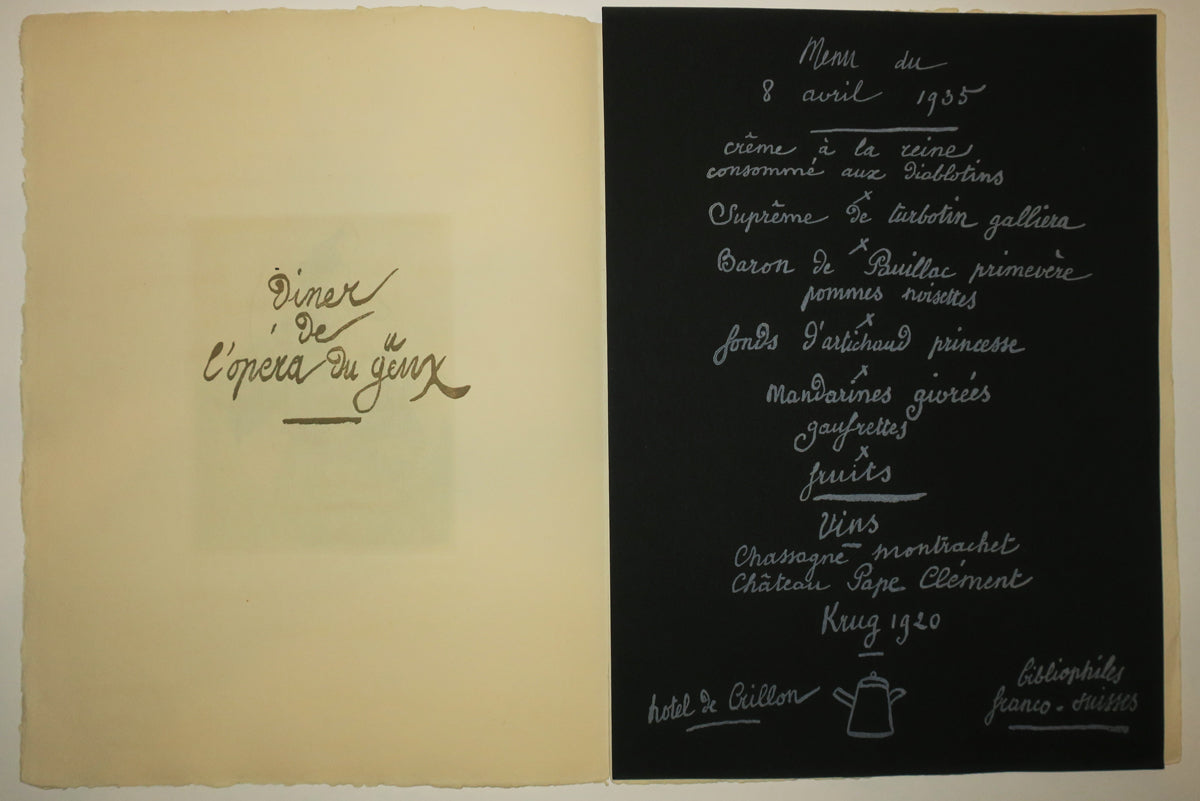 Dîner
de
l'opéra du gueux
Menu du
8 avril 1935
crême à la reine
consommé aux diablotins
x
Suprême de turbotin galliera
x
Baron de Pauillac primevère
pommes noisettes
x
fonds d'artichaud princesse
x
Mandarines givrées
gaufrettes
x
fruits
Vins
Chassagne montrachet
Château Pape Clément
Krug 1920
hotel de Crillon
bibliophiles
franco-suisses